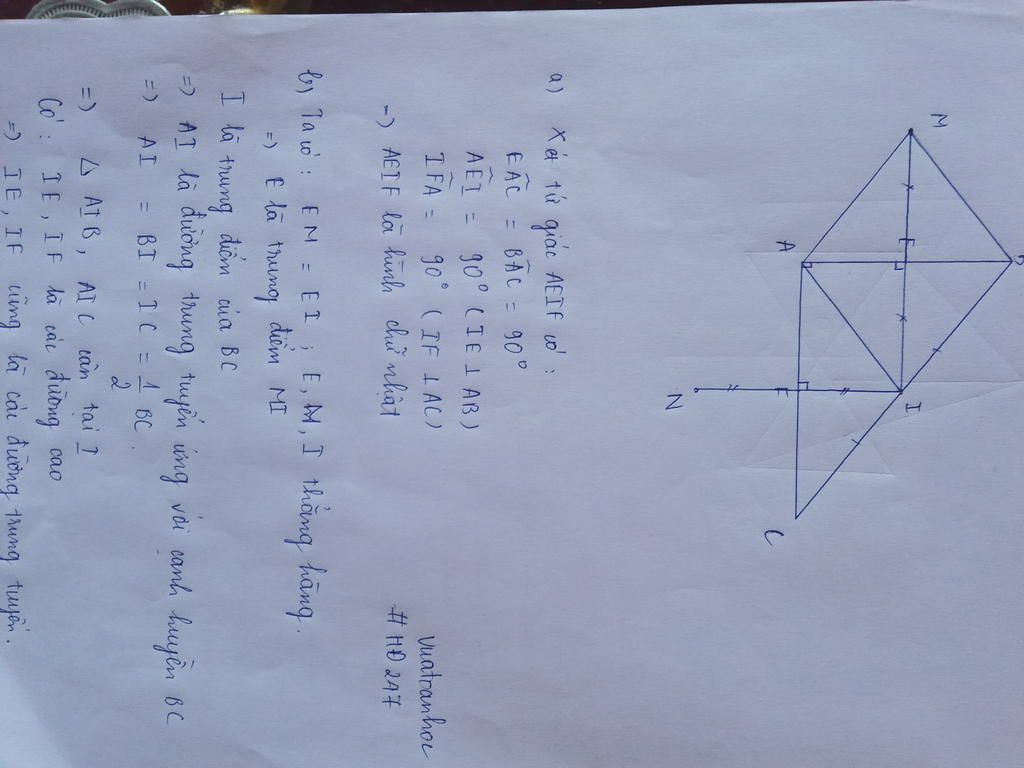 M
B
E
A
I
F
N
C
a) Xét tứ giác AEIF có:
EAC = BAC = 90°
AEI = 90° (IE ⊥ AB)
IFA = 90° (IF ⊥ AC)
=) AEIF là hình chữ nhật
Vuatoanhoc
# HĐ 247
b) Ta có: EM = EI; E, M, I thẳng hàng.
=) E là trung điểm MI
I là trung điểm của BC
=) AI là đường trung tuyến ứng với cạnh huyền BC
=) AI = BI = IC = 1/2 BC.
=) Δ AIB, AIC cân tại I
Có: IE, IF là các đường cao
=) IE, IF cũng là các đường trung tuyến.